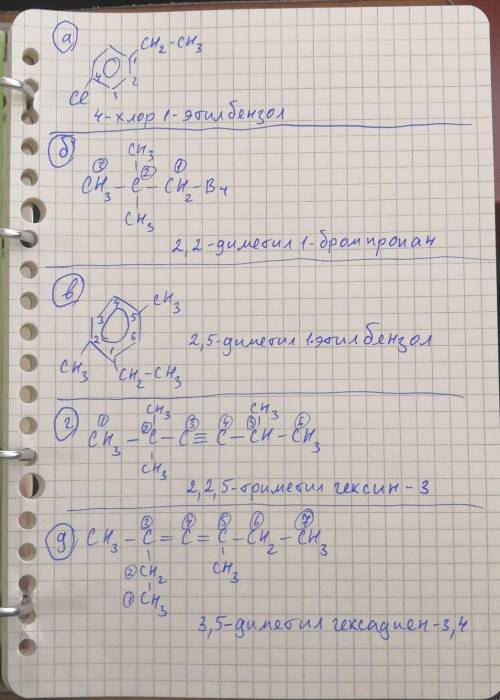 а
CH₂-CH₃
1
4
2
3
Cl
4-хлор 1-этилбензол
б
CH₃
③ ② ①
CH₃ - C - CH₂ - Br
CH₃
2,2-диметил 1-бромпропан
в
4
CH₃
3 5
2 6
1
CH₃
CH₂-CH₃
2,5-диметил 1-этилбензол
г
CH₃ CH₃
① ② ③ ④ ⑤ ⑥
CH₃ - C - C ≡ C - CH - CH₃
CH₃
2,2,5-триметил гексин-3
д
③ ④ ⑤ ⑥ ⑦
CH₃ - C = C = C - CH₂ - CH₃
② CH₂ CH₃
① CH₃
3,5-диметил гексадиен-3,4